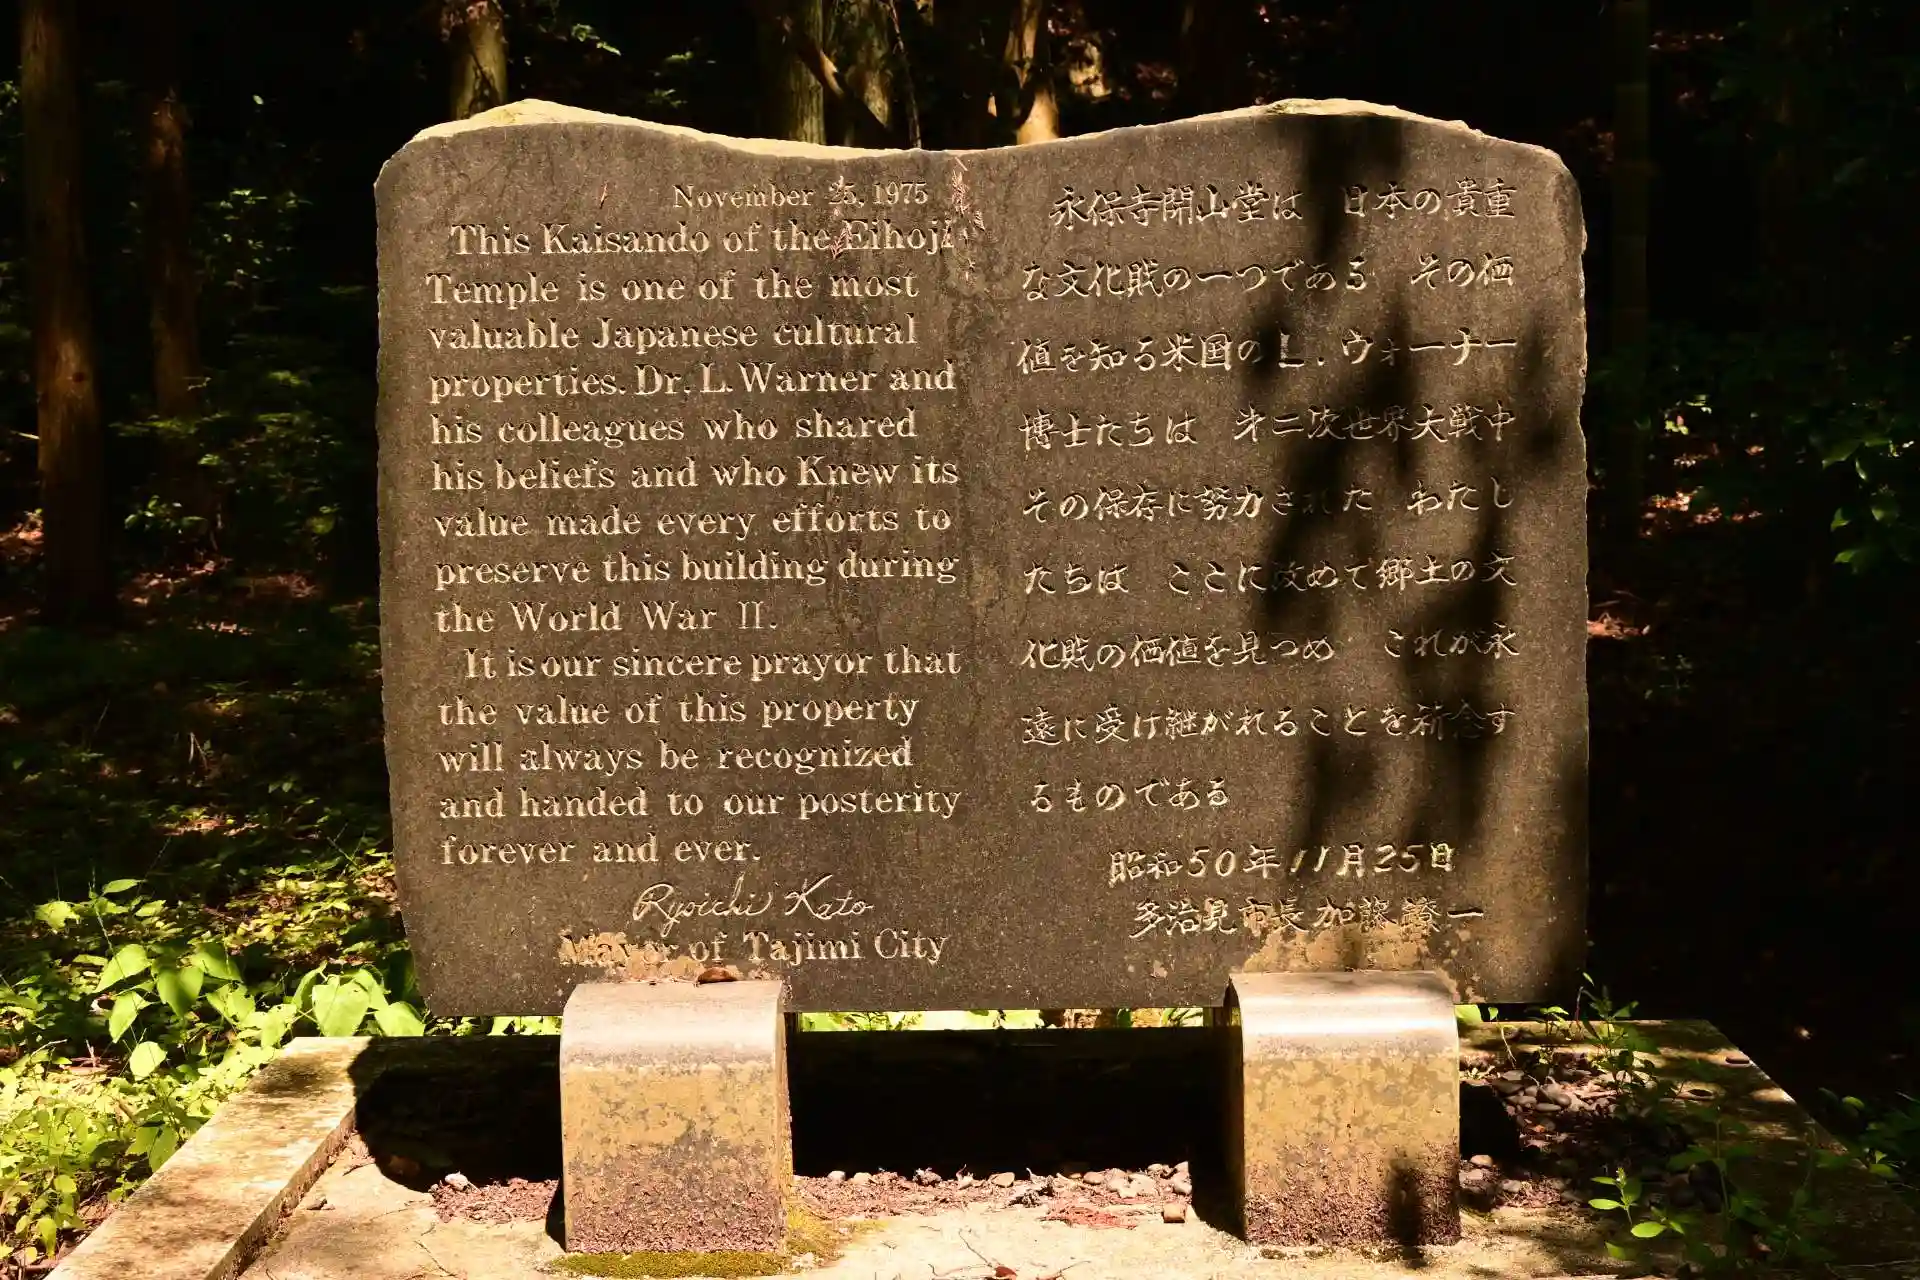 November 25, 1975
This Kaisando of the Eihoji
Temple is one of the most
valuable Japanese cultural
properties. Dr. L. Warner and
his colleagues who shared
his beliefs and who Knew its
value made every efforts to
preserve this building during
the World War II.
It is our sincere prayor that
the value of this property
will always be recognized
and handed to our posterity
forever and ever.
Ryoichi Kato
Mayor of Tajimi City
永保寺開山堂は 日本の貴重
な文化財の一つである その価
値を知る米国のL.ウォーナー
博士たちは 第二次世界大戦中
その保存に努力された わたし
たちは ここに改めて郷土の文
化財の価値を見つめ これが永
遠に受け継がれることを祈念す
るものである
昭和50年11月25日
多治見市長加藤鐐一